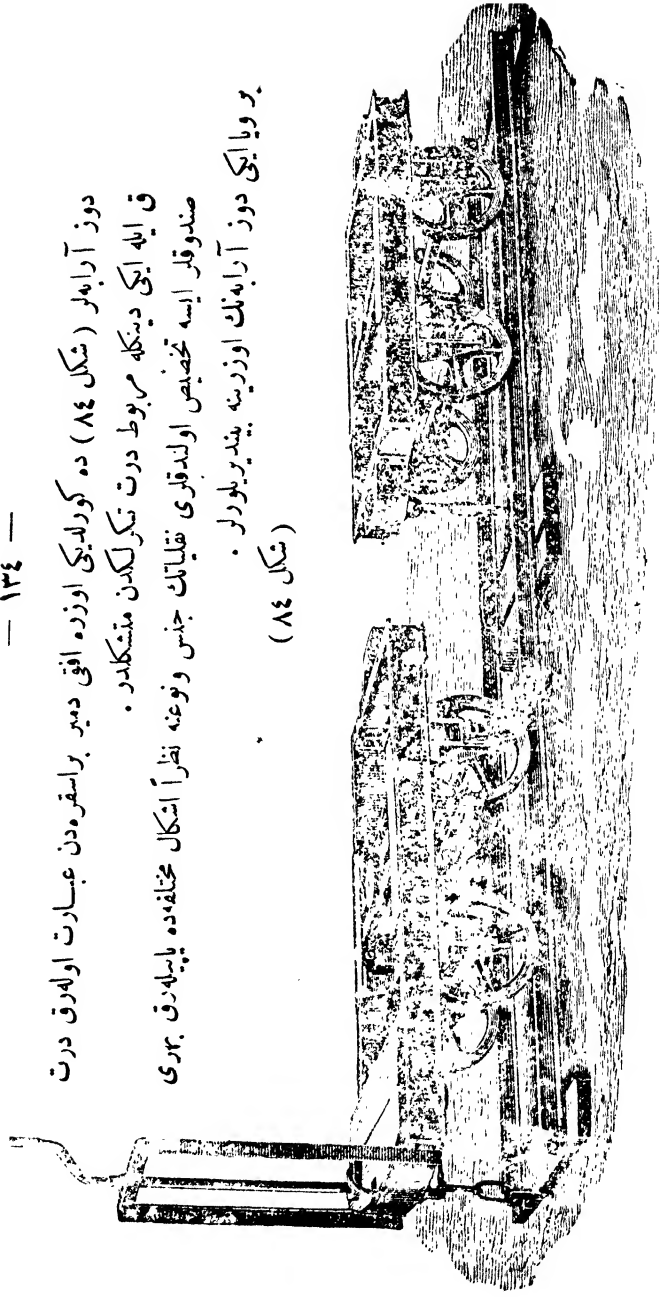 — ١٣٤ —
دوز آرابه‌لر ( شكل ٨٤ ) ده كورلديكى اوزره افقى دمير براسقره‌دن عبــارت اوله‌رق درت
ق ايله ايكى دينكله مربوط درت تكرلكدن متشكلدر .
صندوقلر ايسه تخصيص اولندقلرى نقلياتك جنس ونوعنه نظراً اشكال مختلفه‌ده ياپيله‌رق بهرى
بر ويا ايكى دوز آرابه‌نك اوزرينه بينديريلورلر .
( شكل ٨٤ )